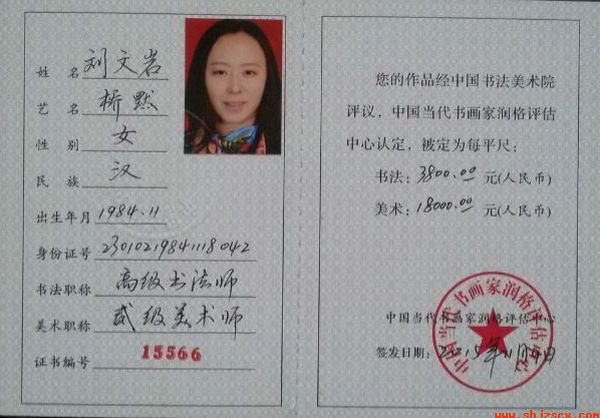 姓 名 刘文岩
艺 名 桥默
性 别 女
民 族 汉
出生年月 1984.11
身份证号 230102198411118042
书法职称 高级书法师
美术职称 贰级美术师
证书编号 15566
您的作品经中国书法美术院
评议，中国当代书画家润格评估
中心认定，被定为每平尺：
书法：3800.00 元(人民币)
美术：18000.00 元(人民币)
中国当代书画家润格评估中心
中国当代书画家润格评估中心
签发日期：2015年11月9日
www.shjzscx.com